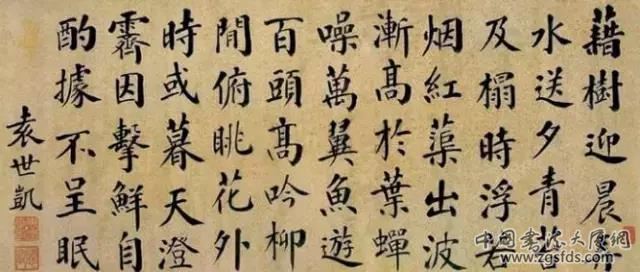 藉樹迎晨
水送夕青
及榻時浮若
烟紅蕖出波
漸高於葉蟬
噪萬翼魚遊
百頭高吟柳
閒俯眺花外
時或暮天澄
霽因擊鮮自
酌據不呈眠
袁世凱
中国书法大厦网
www.zgsfds.com